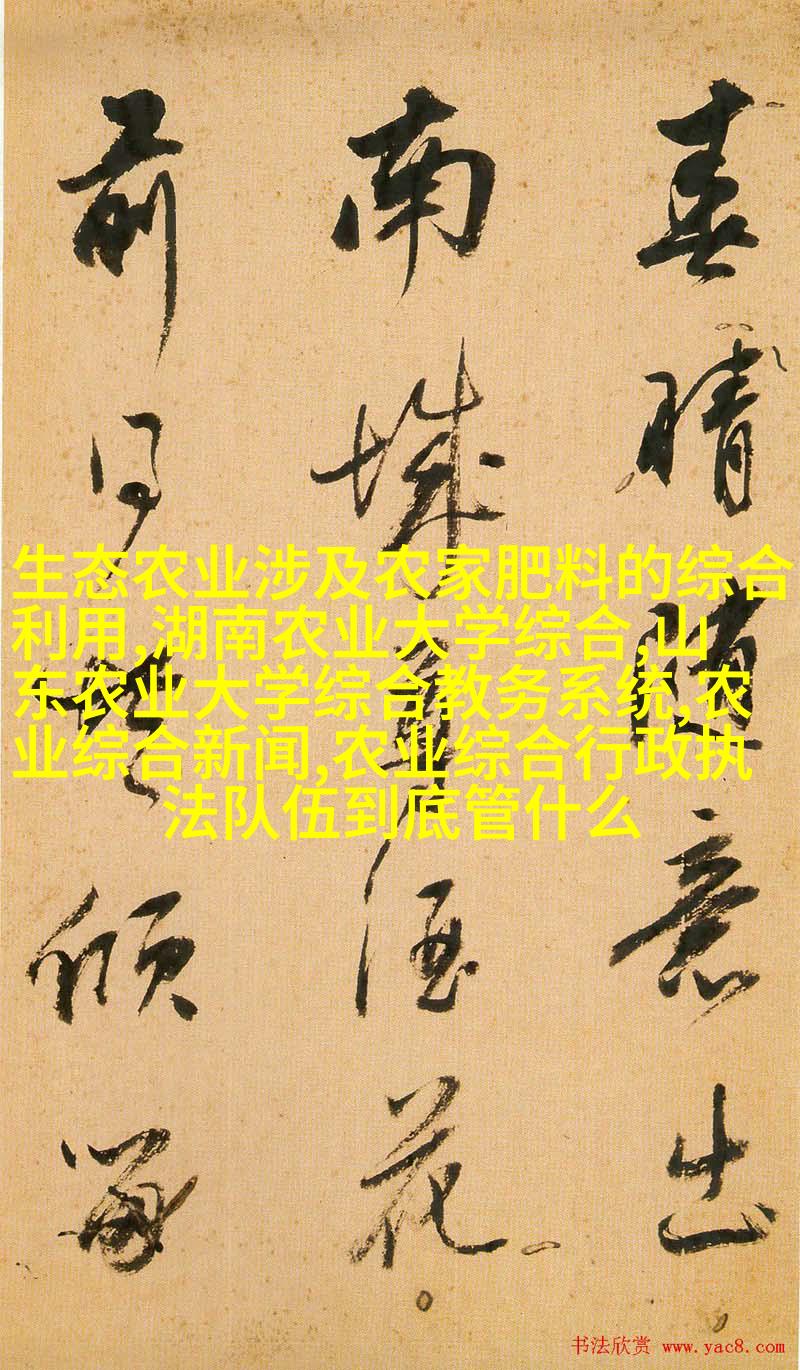 春晴隨意出
南城尊酒花
前同傾留
生态农业涉及农家肥料的综合
利用,湖南农业大学综合,山
东农业大学综合教务系统,农
业综合新闻,农业综合行政执
法队伍到底管什么
书法欣赏 www.yac8.com